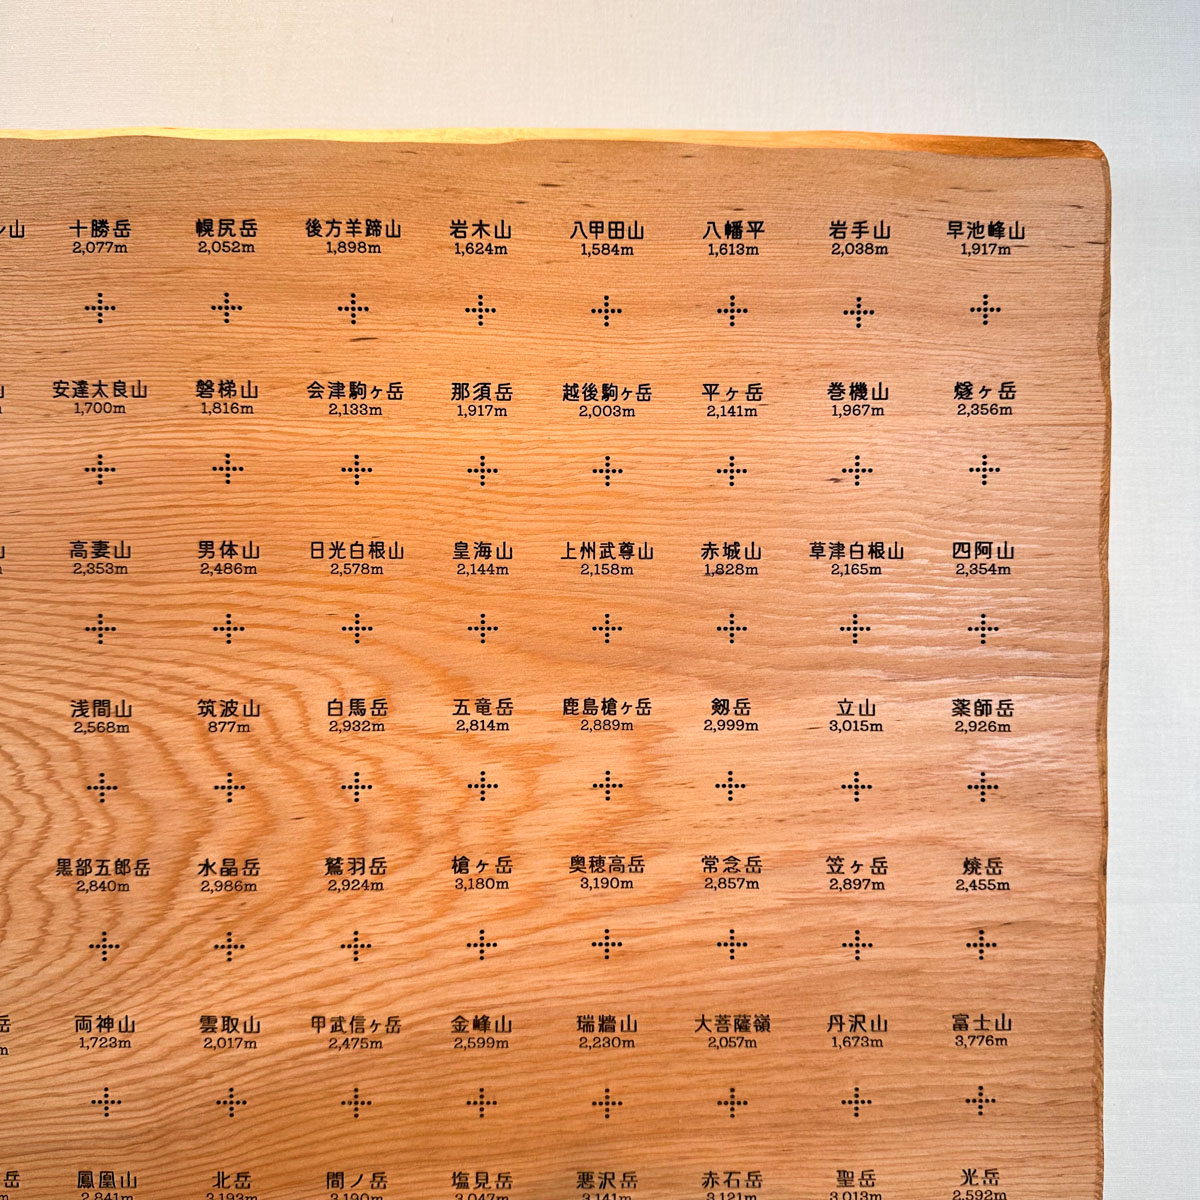 山 十勝岳 幌尻岳 後方羊蹄山 岩木山 八甲田山 八幡平 岩手山 早池峰山
2,077m 2,052m 1,898m 1,624m 1,584m 1,613m 2,038m 1,917m
安達太良山 磐梯山 会津駒ヶ岳 那須岳 越後駒ヶ岳 平ヶ岳 巻機山 燧ヶ岳
1,700m 1,816m 2,133m 1,917m 2,003m 2,141m 1,967m 2,356m
高妻山 男体山 日光白根山 皇海山 上州武尊山 赤城山 草津白根山 四阿山
2,353m 2,486m 2,578m 2,144m 2,158m 1,828m 2,165m 2,354m
浅間山 筑波山 白馬岳 五竜岳 鹿島槍ヶ岳 剱岳 立山 薬師岳
2,568m 877m 2,932m 2,814m 2,889m 2,999m 3,015m 2,926m
黒部五郎岳 水晶岳 鷲羽岳 槍ヶ岳 奥穂高岳 常念岳 笠ヶ岳 焼岳
2,840m 2,986m 2,924m 3,180m 3,190m 2,857m 2,897m 2,455m
岳 両神山 雲取山 甲武信ヶ岳 金峰山 瑞牆山 大菩薩嶺 丹沢山 富士山
m 1,723m 2,017m 2,475m 2,599m 2,230m 2,057m 1,673m 3,776m
岳 鳳凰山 北岳 間ノ岳 塩見岳 悪沢岳 赤石岳 聖岳 光岳
2,841m 3,193m 3,190m 3,047m 3,141m 3,121m 3,013m 2,592m